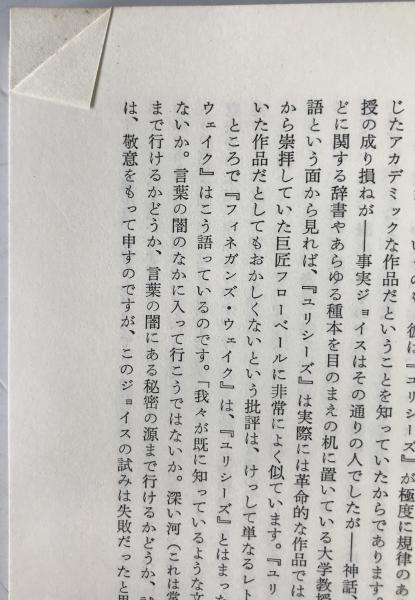 彼は『ユリシーズ』が極度に規律のあ
じたアカデミックな作品だということを知っていたからであります。
授の成り損ねが――事実ジョイスはその通りの人でしたが――神話、
どに関する辞書やあらゆる種本を目のまえの机に置いている大学教授
語という面から見れば、『ユリシーズ』は実際には革命的な作品では
から崇拝していた巨匠フローベールに非常によく似ています。『ユリ
いた作品だとしてもおかしくないという批評は、けっして単なるレト
ところで『フィネガンズ・ウェイク』は、『ユリシーズ』とはまった
ウェイク』はこう語っているのです。「我々が既に知っているような文
ないか。言葉の闇のなかに入って行こうではないか。深い河（これは常
まで行けるかどうか、言葉の闇にある秘密の源まで行けるかどうか、試
は、敬意をもって申すのですが、このジョイスの試みは失敗だったと思